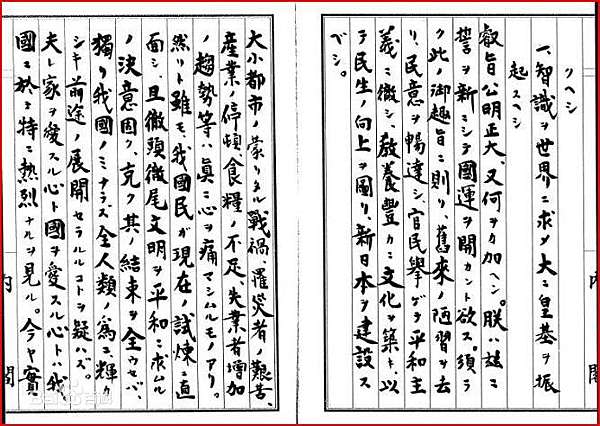 内閣
クヘシ
一、智識ヲ世界ニ求メ大ニ皇基ヲ振
起スヘシ
叡旨公明正大、又何ヲカ加ヘン。朕ハ茲ニ
誓ヲ新ニシテ國運ヲ開カント欲ス。須ラ
ク此ノ御趣旨ニ則リ、舊來ノ陋習ヲ去
リ、民意ヲ暢達シ、官民擧ゲテ平和主
義ニ徹シ、敎養豐カニ文化ヲ築キ、以
テ民生ノ向上ヲ圖リ、新日本ヲ建設ス
ベシ。
大小都市ノ蒙リタル戰禍、罹災者ノ艱苦、
産業ノ停頓、食糧ノ不足、失業者増加
ノ趨勢等ハ眞ニ心ヲ痛マシムルモノアリ。
然リト雖モ、我國民ガ現在ノ試煉ニ直
面シ、且徹頭徹尾文明ヲ平和ニ求ムル
ノ決意固ク、克ク其ノ結束ヲ全ウセバ、
獨リ我國ノミナラズ全人類ノ爲ニ、輝カ
シキ前途ノ展開セラルルコトヲ疑ハズ。
夫レ家ヲ愛スル心ト國ヲ愛スル心トハ我
國ニ於テ特ニ熱烈ナルヲ見ル。今ヤ實
内閣